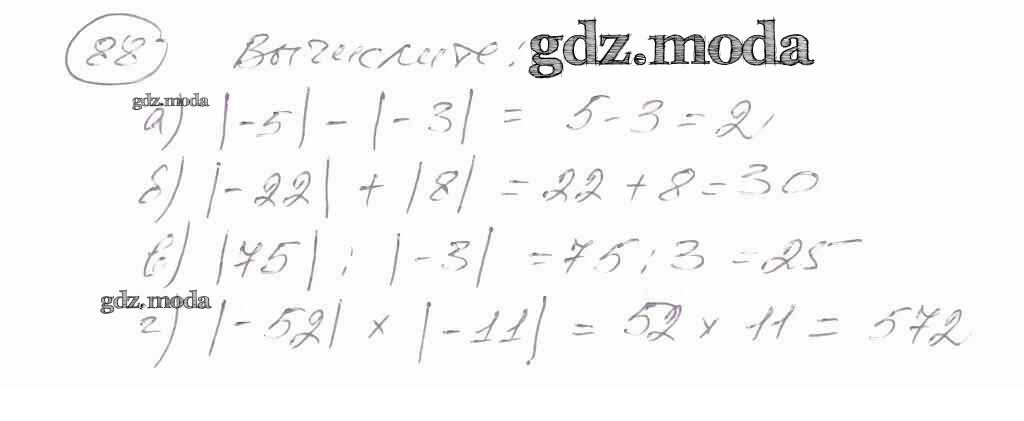 88 Вычислите: gdz.moda
gdz.moda
а) |-5| - |-3| = 5 - 3 = 2
б) |-22| + |8| = 22 + 8 = 30
в) |75| : |-3| = 75 : 3 = 25
gdz.moda
г) |-52| × |-11| = 52 × 11 = 572